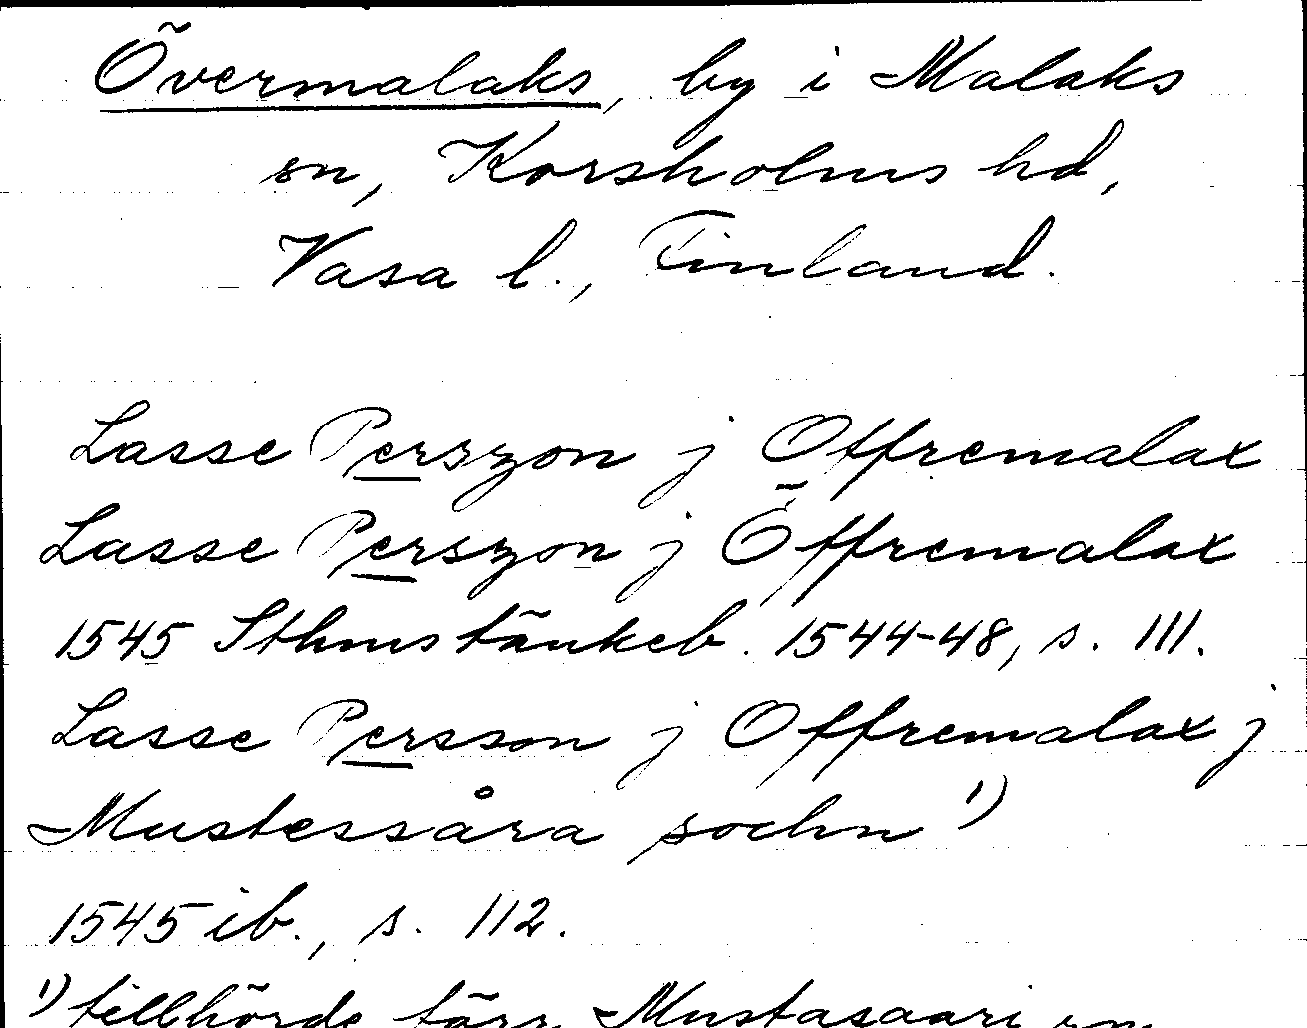 Övermalaks, by i Malaks
sn, Korsholms hd,
Vasa l., Finland.
Lasse Perszon j Offremalax
Lasse Perszon j Öffremalax
1545 Sthms tänkeb. 1544-48, s. 111.
Lasse Persson j Offremalax j
Mustessåra sochn 1)
1545 ib., s. 112.
1) tillhörde förr Mustasaari sn